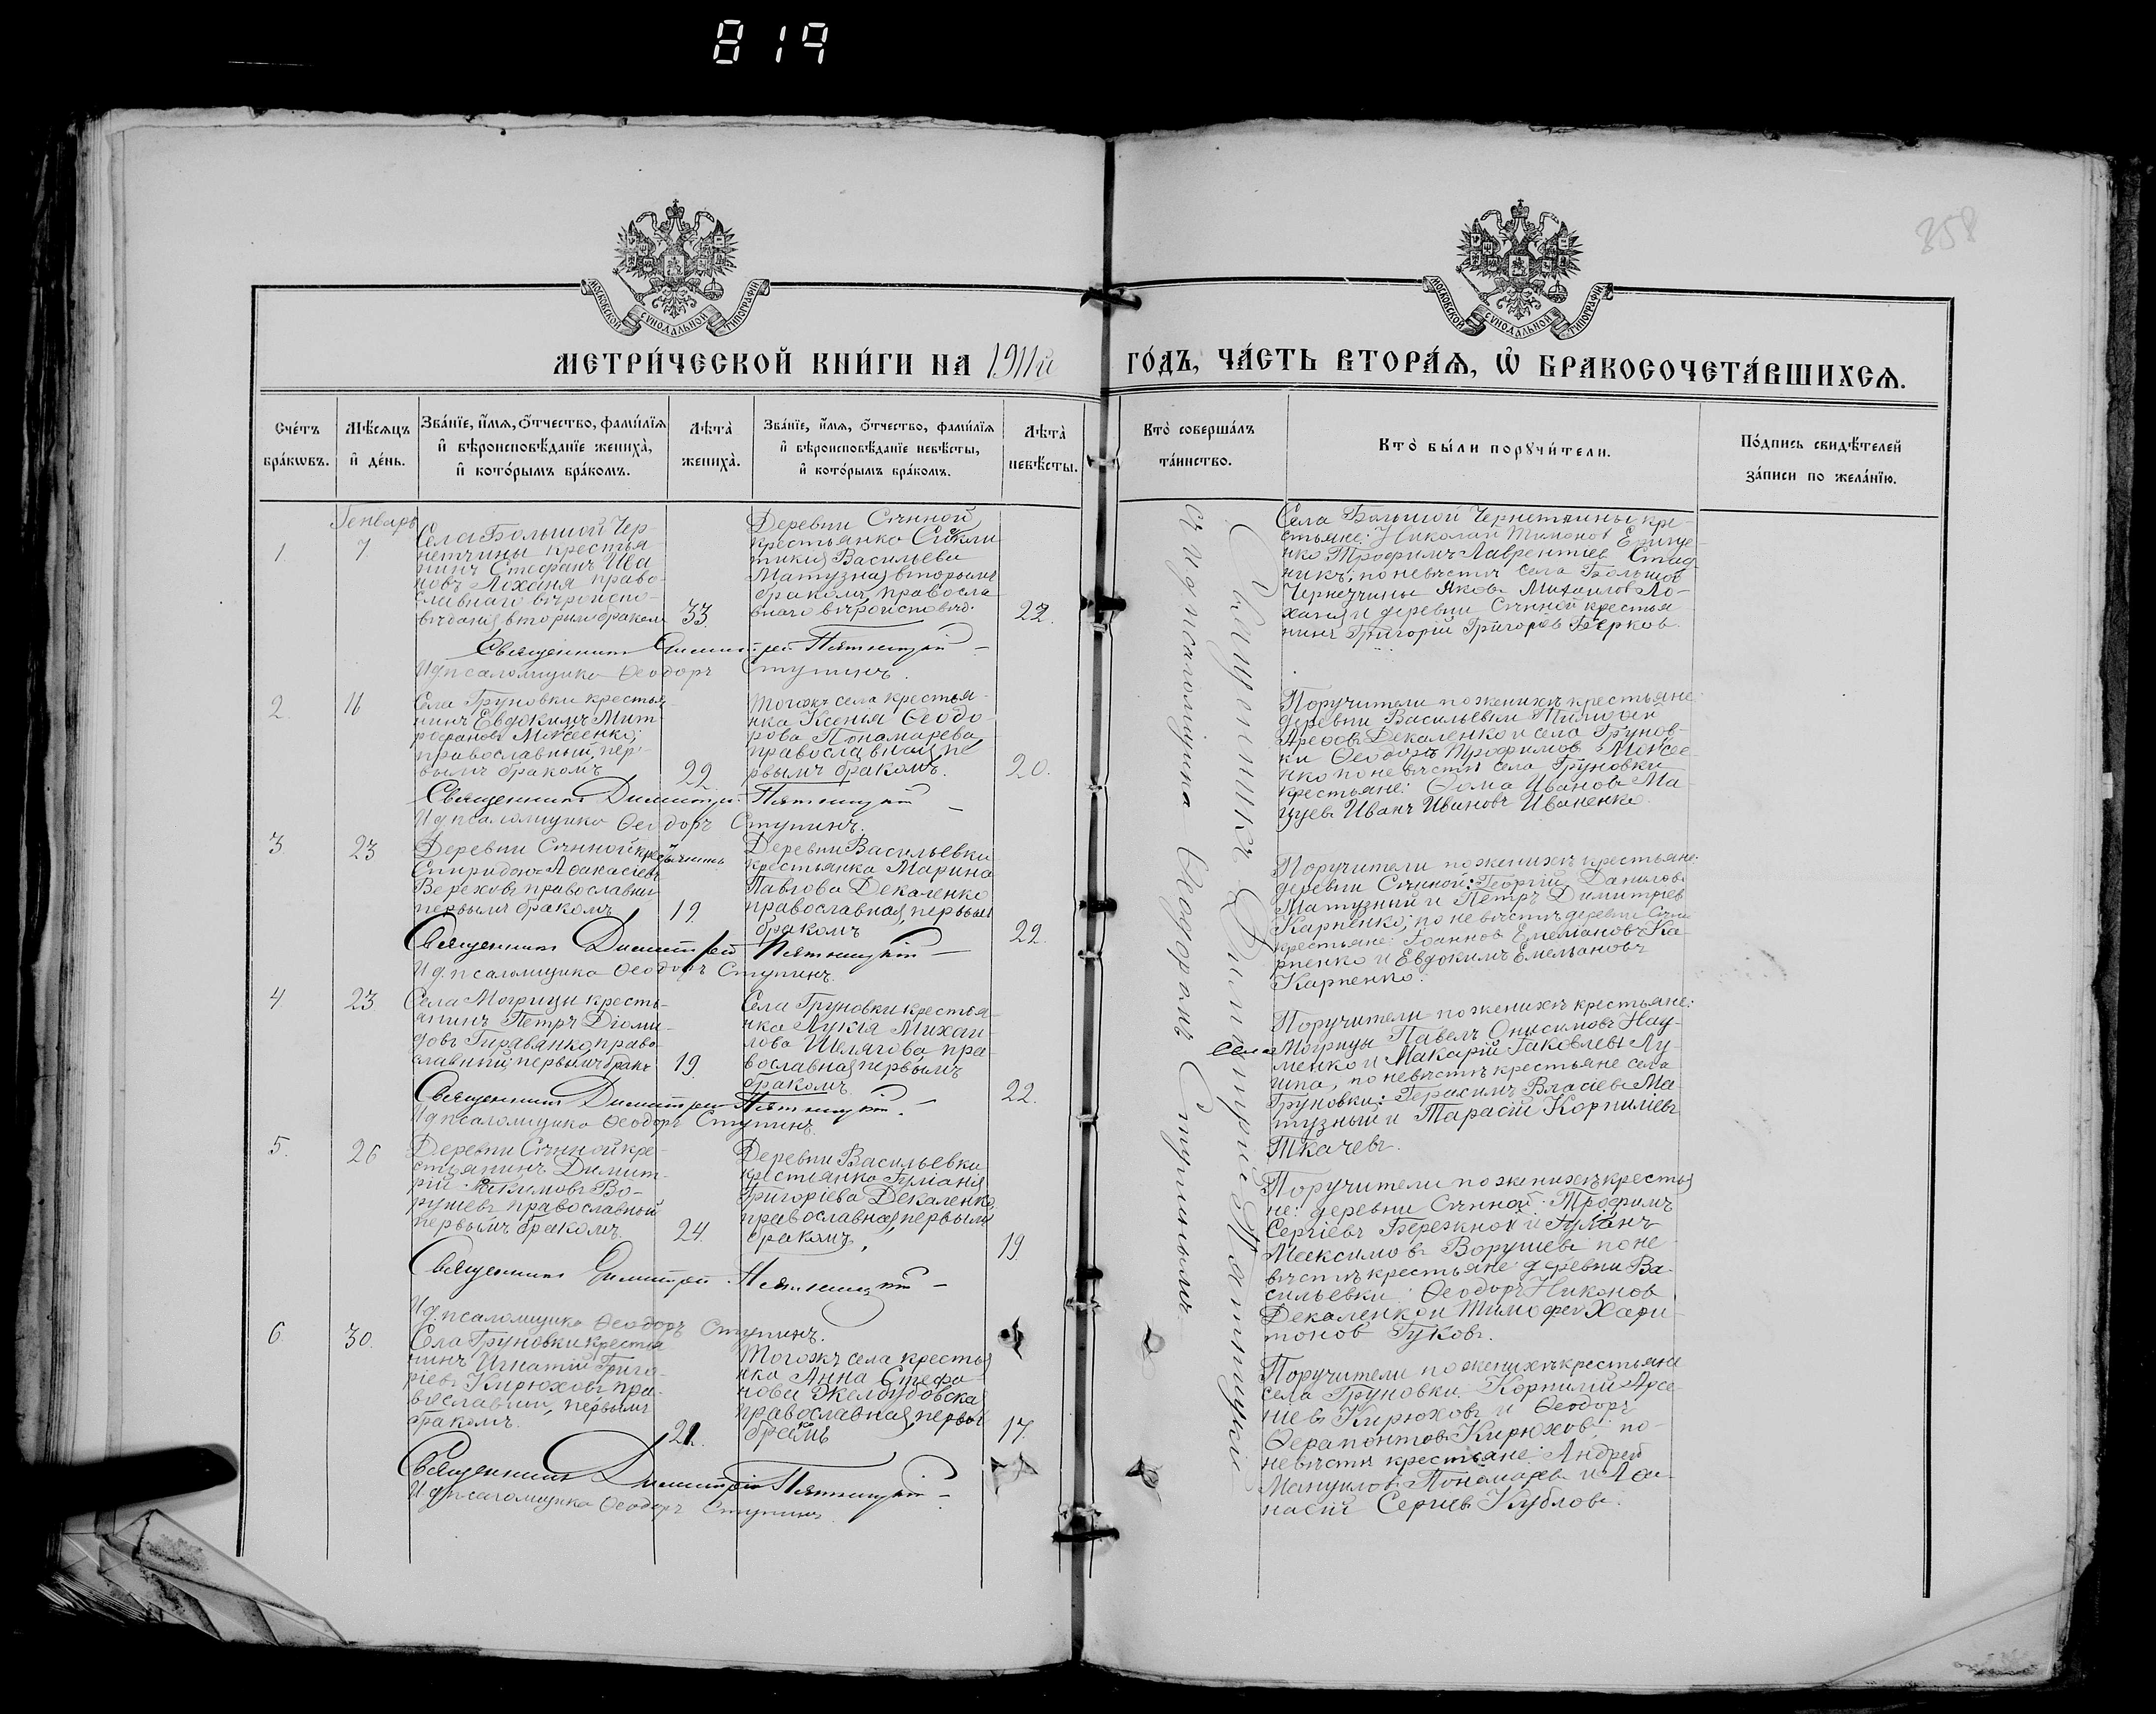 819
358
МОСКОВСКОЙ СѴНОДАЛЬНОЙ ТИПОГРАФІИ
МОСКОВСКОЙ СѴНОДАЛЬНОЙ ТИПОГРАФІИ
МЕТРИ́ЧЕСКОЙ КНИ́ГИ НА 1911й ГО́ДЪ, ЧА́СТЬ ВТОРА́Ѧ, Ѡ҆ БРАКОСОЧЕТА́ВШИХСѦ.
Сче́тъ бра́кѡвъ.
Мѣ́сѧцъ и҆ де́нь.
Зва́нїе, и҆́мѧ, ѻ҆́тчество, фами́лїѧ
и҆ вѣроисповѣ́данїе жениха̀,
и҆ кото́рымъ бра́комъ.
Лѣта̀ жениха̀.
Зва́нїе, и҆́мѧ, ѻ҆́тчество, фами́лїѧ
и҆ вѣроисповѣ́данїе невѣ́сты,
и҆ кото́рымъ бра́комъ.
Лѣта̀ невѣ́сты.
Кто̀ соверша́лъ та́инство.
Кто̀ бы́ли порꙋчи́тели.
По́дпись свидѣ́телей
за́писи по жела́нїю.
Генварь
1.
7
Села Большой Чер-
нетчины крестья-
нинъ Стефанъ Ива
новъ Лоханя право-
славнаго вѣроиспо-
вѣданія вторым браком
33.
Деревни Сѣнной
крестьянка
Васильева
Матузная вторымъ
бракомъ, правосла
внаго вѣроисповѣд.
22.
Села Большой Чернетчины кре-
стьяне: Николай Тимонов
Трофимъ Лаврентіев
по невѣстѣ села Большой
Чернетчины Яковъ Михаилов Ло-
ханя и деревни Сѣнной крестья
нинъ Григорій Григорьев
Священникъ Димитрій Пятницкій
И д псаломщика Ѳеодоръ Ступинъ.
2.
16
Села Груновки крестья-
нинъ Евдокимъ Мит
рофановъ Моисеенко,
православный, пер-
вымъ бракомъ
22.
Тогожъ села крестья-
нка Ксенія Ѳеодо-
рова Пономарева
православная, пе
рвымъ бракомъ.
20.
Поручители по женихѣ крестьяне
деревни Васильевки Тимофей
Арефов Декаленко и села Грунов-
ки Ѳеодоръ Трофимов Моисе-
нко по невѣстѣ села Груновки
крестьяне: Ѳома Иванов Ма-
цуев Иванъ Ивановъ Иваненко.
Священникъ Димитрій Пятницкій
И д псаломщика Ѳеодоръ Ступинъ.
3
23
Деревни Сѣнной крестьянинъ
Спиридонъ Аѳанасіевъ
Верехов, православный
первымъ бракомъ
19.
Деревни Васильевки
крестьянка Марина
Павлова Декаленко
православная, первым
бракомъ
22.
Поручители по женихѣ крестьяне:
деревни Сѣнной: Георгій Данилов
Матузный и Петръ Димитріев
Карпенко; по невѣстѣ деревни
крестьяне: Іоаннов Емелианов Ка-
рпенко и Евдокимъ Емельяновъ
Карпенко.
Священникъ Димитрій Пятницкій
И д псаломщика Ѳеодоръ Ступинъ.
4
23
Села Могрицы кресть-
янинъ Петръ Діоми-
довъ право-
славный, первымъ брак
19.
Села Груновки крестья-
нка Лукія Михаи-
лова Шелягова, пра-
вославная первымъ
бракомъ
22.
Поручители по женихѣ крестьяне:
села Могрицы Павелъ Онисимовъ Нау-
менко и Макарій Іаковлевъ Лу-
шпа, по невѣстѣ крестьяне села
Груновки: Герасимъ Власіевъ Ма-
тузный и Тарасій Корнилієвъ
Ткачевъ.
Священникъ Димитрій Пятницкій
И д псаломщика Ѳеодоръ Ступинъ.
5.
26
Деревни Сѣнной кре-
стьянинъ Димит-
рій Максимовъ Во-
рушев, православный
первымъ бракомъ.
24.
Деревни Васильевки
крестьянка Іуліанія
Григоріева Декаленко,
православная, первым
бракомъ,
19.
Поручители по женихѣ крестья
не: деревни Сѣнной: Трофимъ
Сергіевъ Бережной и Іуліанъ
Максимовъ Ворушевъ по не-
вѣстѣ крестьяне деревни Ва-
сильевки: Ѳеодоръ Никонов
Декаленко и Тимофей Хари-
тонов Гуковъ.
Священникъ Димитрій Пятницкій
И д. псаломщика Ѳеодоръ Ступинъ.
6.
30.
Села Груновки крестья
нинъ Игнатій Григо-
ріевъ Кирюховъ пра-
вославный, первымъ
бракомъ.
21.
Тогожъ села крестья
нка Анна Стефа-
нова Желбудовская
православная, первым
бракомъ
17.
Поручители по женихѣ крестьяне
села Груновки: Корнилій Арсе-
ніев Кирюховъ и Ѳеодоръ
Ѳерапонтов Кирюхов, по
невѣстѣ крестьяне: Андрей
Мануилов Пономарев и Аѳа-
насій Сергіев Кублов.
Священникъ Димитрій Пятницкій
И д псаломщика Ѳеодоръ Ступинъ.
Священникъ Димитрій Пятницкій
съ и д псаломщика Ѳеодоромъ Ступинымъ.